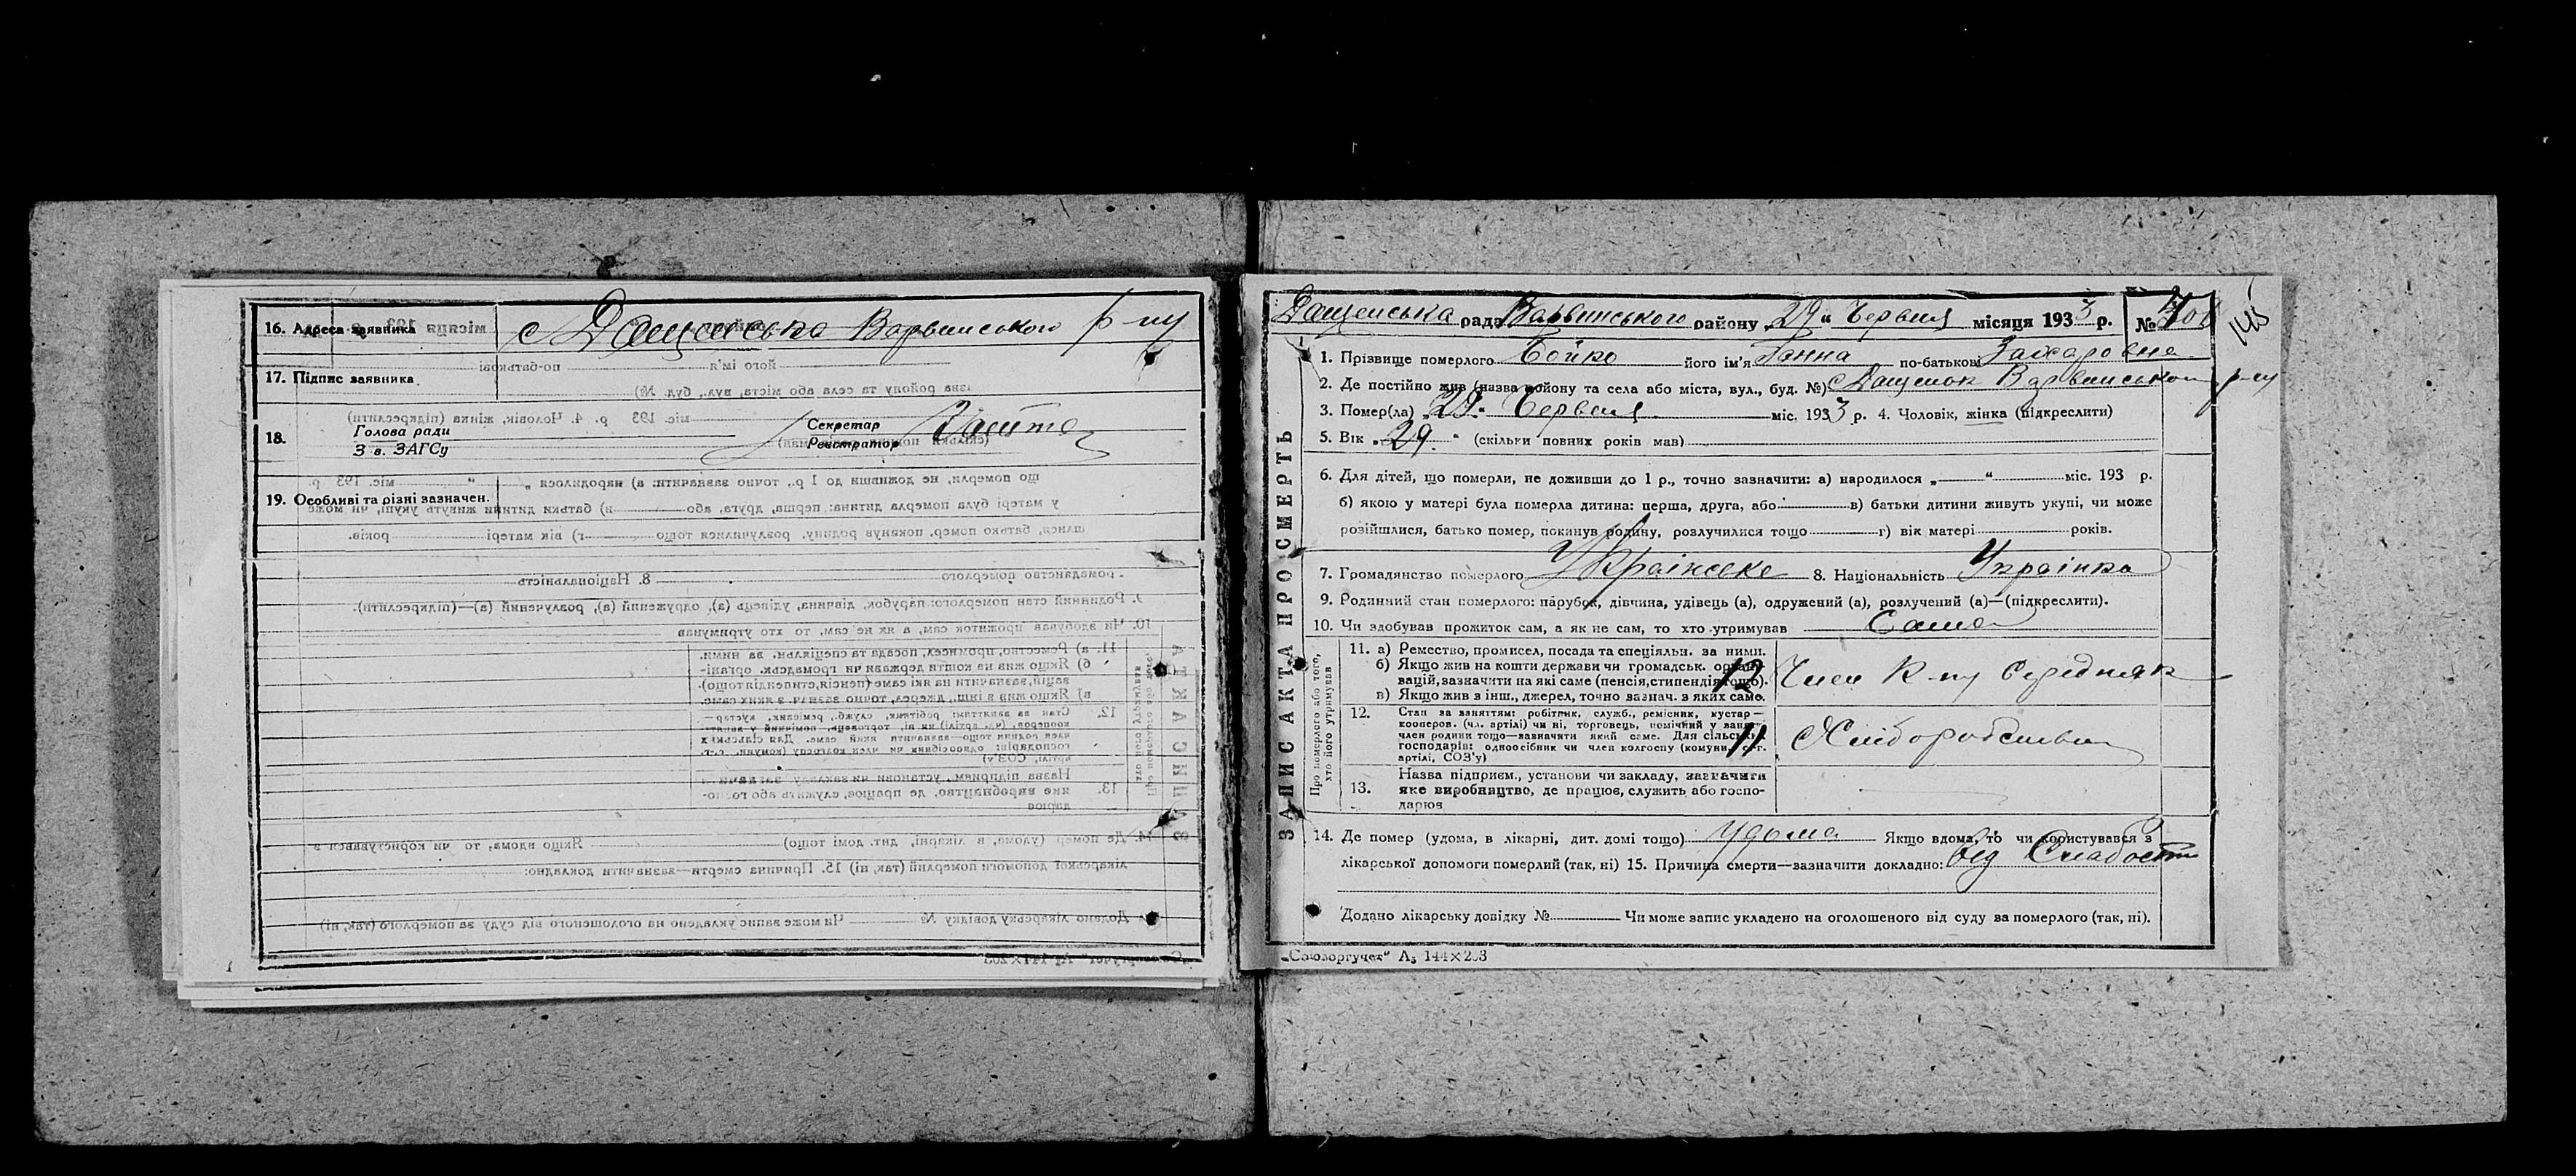 16. Адреса заявника с Дащенська Варвинського р-ну
17. Підпис заявника
18. Голова ради
З в. ЗАГСу
Секретар
Реєстратор
19. Особливі та різні зазначен.
Дащенська рада Варвинського району „29“ Червня місяця 1933 р. №
145
ЗАПИС АКТА ПРО СМЕРТЬ
1. Прізвище померлого Бойко його ім'я Ганна по-батькові Захаровна
2. Де постійно жив (назва району та села або міста, вул., буд. №) с Дащенок Варвинського р-ну
3. Помер(ла) „29“ Червня міс. 1933 р. 4. Чоловік, жінка (підкреслити)
5. Вік „29“ (скільки повних років мав)
6. Для дітей, що померли, не доживши до 1 р., точно зазначити: а) народилося „ “ міс. 193 р.
б) якою у матері була померла дитина: перша, друга, або в) батьки дитини живуть укупі, чи може
розійшлися, батько помер, покинув родину, розлучилися тощо г) вік матері років.
7. Громадянство померлого Українске 8. Національність Українка
9. Родинний стан померлого: парубок, дівчина, удівець (а), одружений (а), розлучений (а)—(підкреслити).
10. Чи здобував прожиток сам, а як не сам, то хто утримував Сама
Про померлого або того,
хто його утримував
11. а) Ремество, промисел, посада та спеціяльн. за ними.
б) Якщо жив на кошти держави чи громадськ. органі-
зацій, зазначити на які саме (пенсія, стипендія тощо).
в) Якщо жив з інш., джерел, точно зазнач. з яких саме.
12 Член К-пу Середняк
12. Стан за заняттям: робітник, служб., ремісник, кустар—
кооперов. (чл. артілі) чи ні, торговець, помічний у занят.
член родини тощо—зазначити який саме. Для сільських
господарів: одноосібник чи член колгоспу (комуни, с.-г.
артілі, СОЗ'у)
11 Хліборобство
13. Назва підприєм., установи чи закладу, зазначити
яке виробництво, де працює, служить або госпо-
дарює
14. Де помер (удома, в лікарні, дит. домі тощо) Удома Якщо вдома, то чи користувався з
лікарської допомоги померлий (так, ні) 15. Причина смерти—зазначити докладно: від Слабости
Додано лікарську довідку № Чи може запис укладено на оголошеного від суду за померлого (так, ні).
„Союзоргучет“ А5 144×203